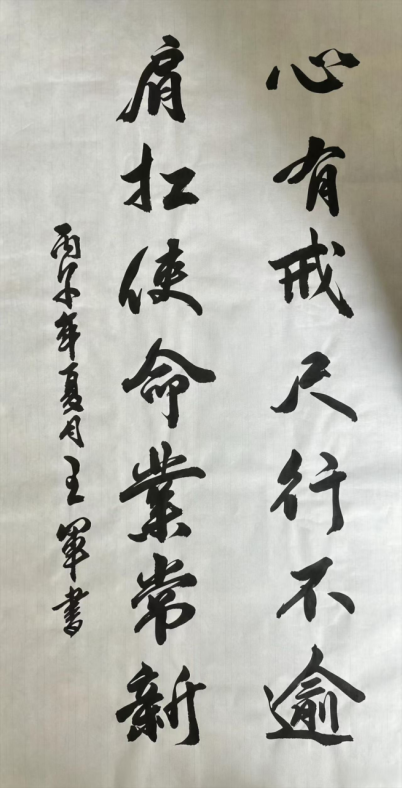 心有戒尺行不逾
肩扛使命業常新
丙午年夏月王軍書